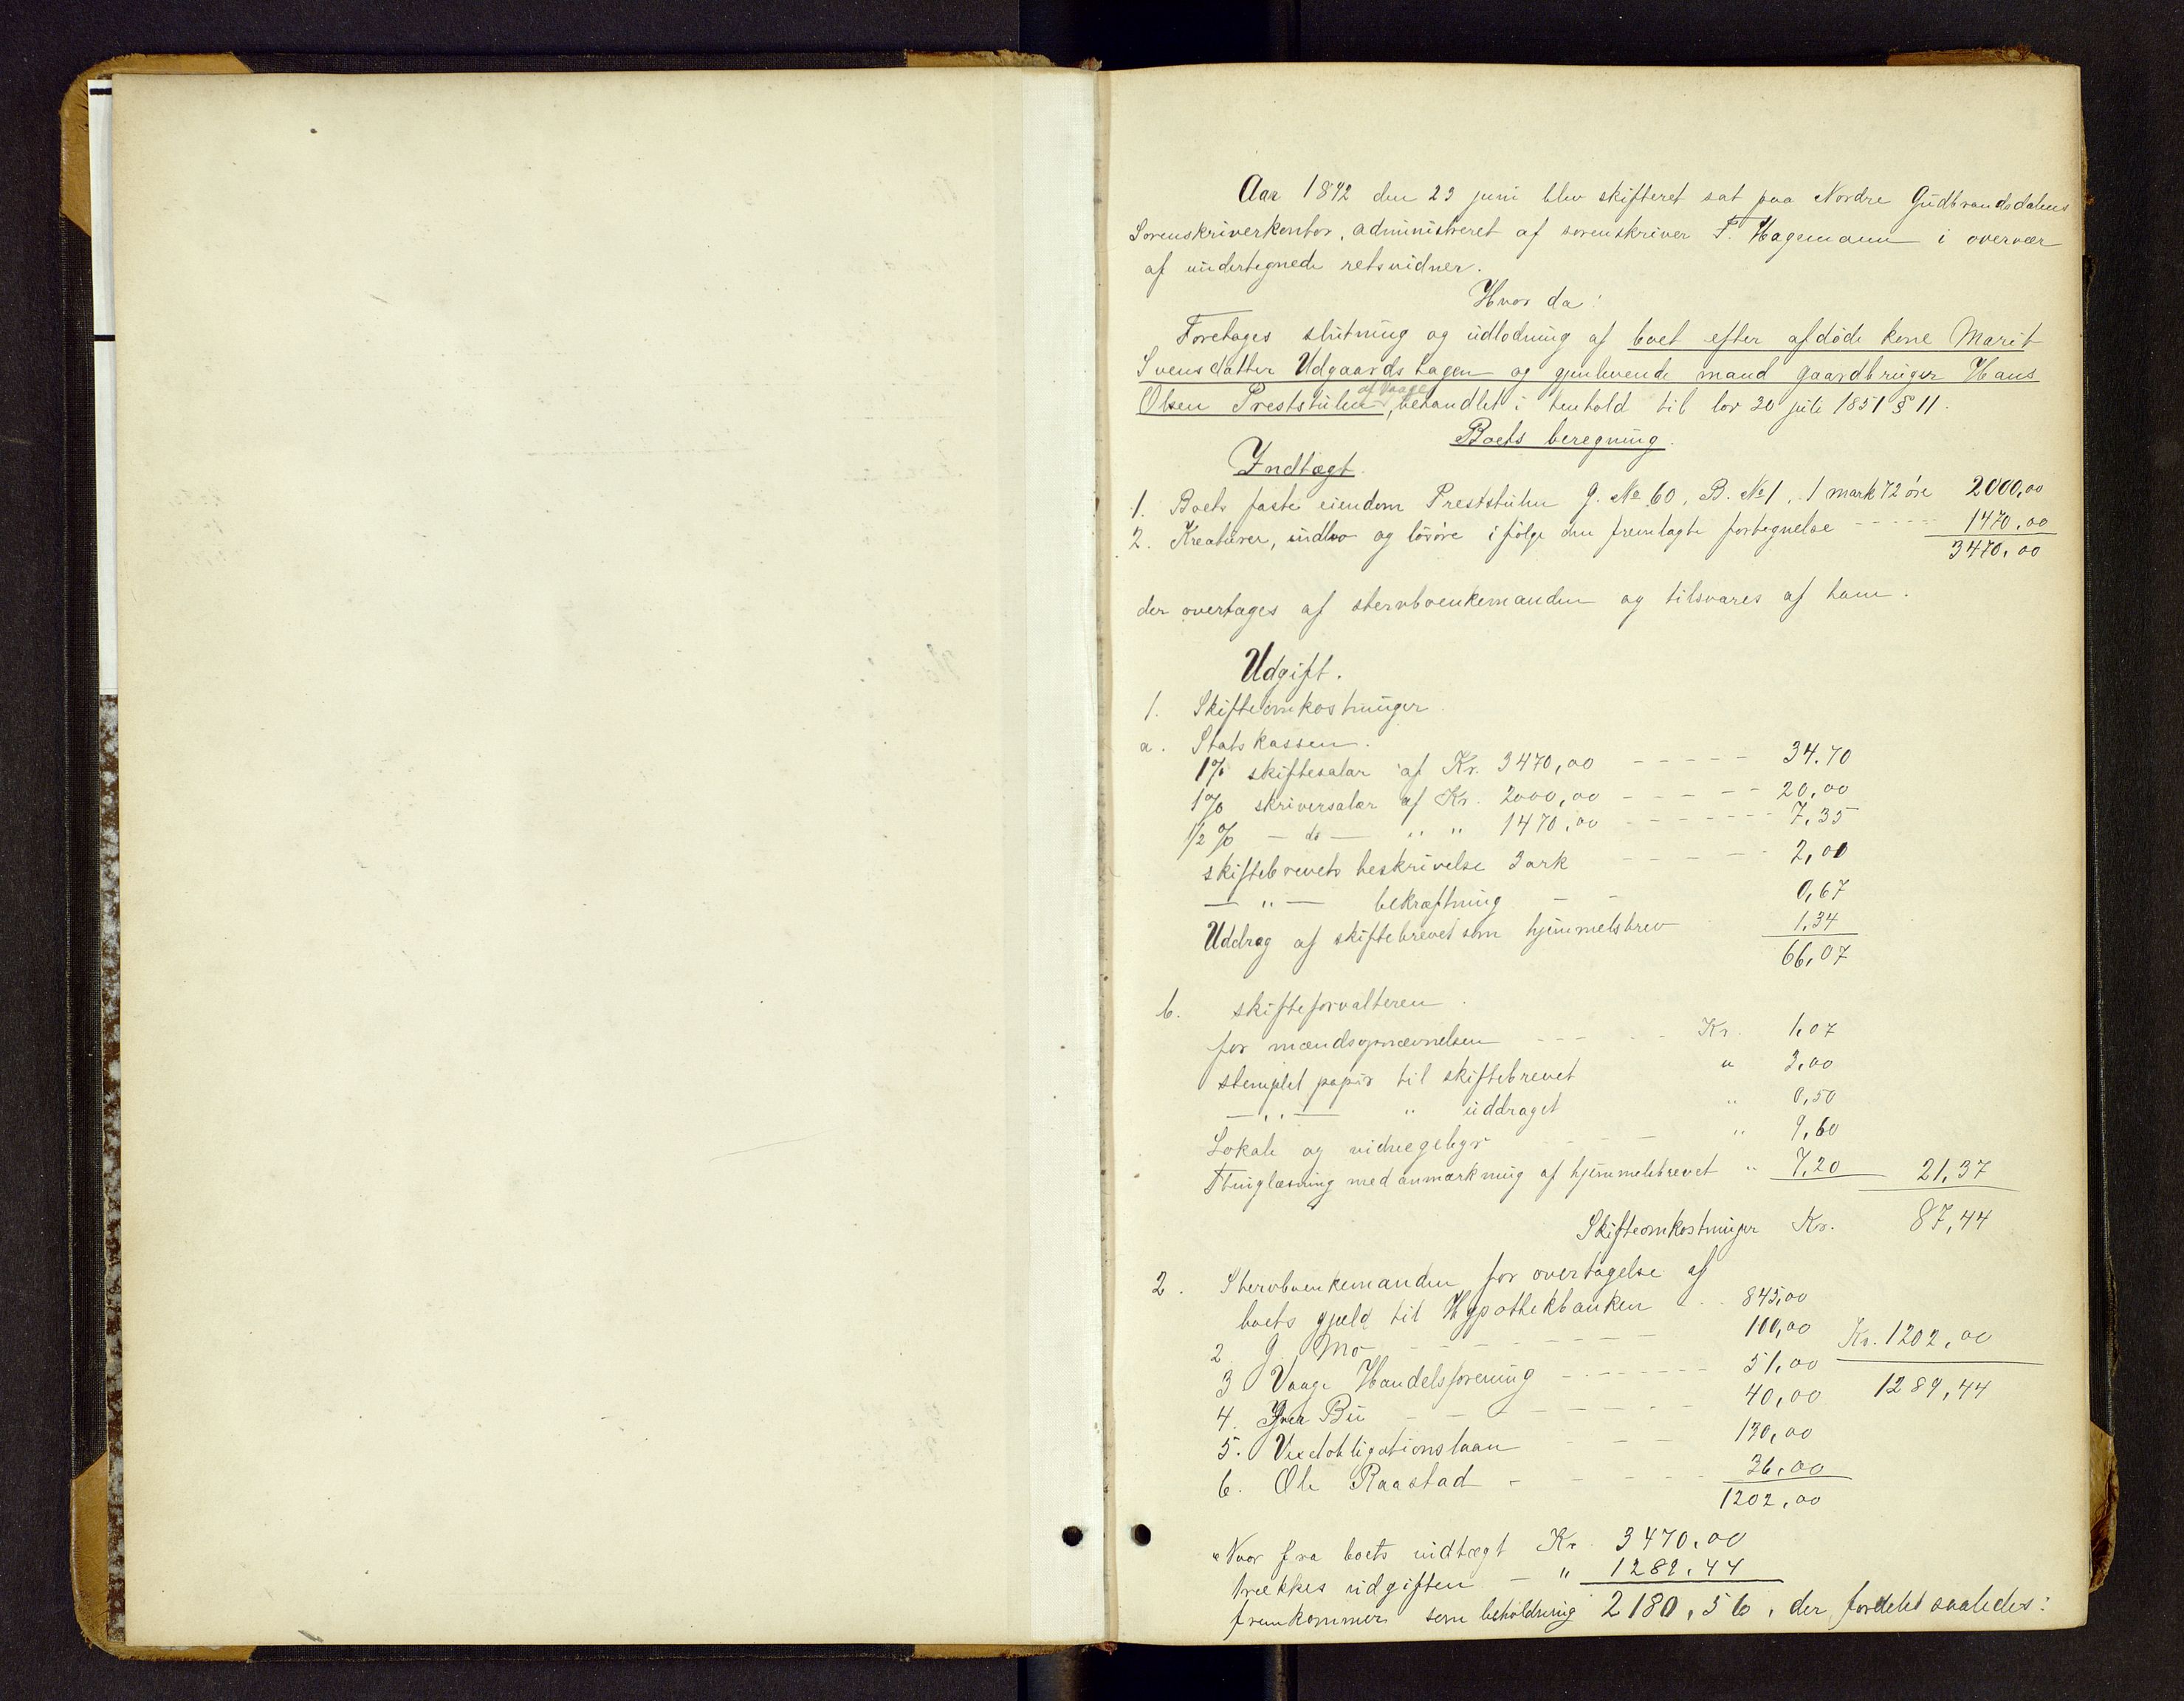 Aar 1892 den 23 juni blev skifteret sat paa Nordre Gudbrandsdalens
Sorenskriverkontor, administreret af sorenskriver F. Hagemann i overvær
af undertegnede retsvidner.
Hvor da:
Foretages slutning og udlodning af boet efter afdøde kone Marit
Svensdatter Udgaardshagen og gjenlevende mand gaardbruger Hans
Olsen Preststulen af Vaage, behandlet i henhold til lov 30 juli 1851 § 11.
Boets beregning.
Indtægt.
1. Boets faste eiendom Preststulen G. No 60, B. No 1, 1 mark 72 øre 2000,00
2. Kreaturer, indbo og løsøre ifølge den fremlagte fortegnelse 1470,00
3470,00
der overtages af stervboenkemanden og tilsvares af ham.
Udgift.
1. Skifteomkostninger
a. Statskassen.
1% skiftesalær af Kr. 3470,00 34.70
1% skriversalær af Kr. 2000,00 20,00
1/2 % - do - " " 1470,00 7,35
skiftebrevets beskrivelse 3 ark 2,01
— " — bekræftning 0,67
Uddrag af skiftebrevet som hjemmelsbrev 1,34
66,07
b. skifteforvalteren.
for mændsopnævnelsen Kr. 1,07
stemplet papir til skiftebrevet " 3,00
— " — " uddraget " 0,50
Lokale og vidnegebyr " 9,60
Thinglæsning med anmærkning af hjemmelsbrevet " 7,20 21,37
Skifteomkostninger Kr. 87,44
2. Stervboenkemanden for overtagelse af
boets gjæld til Hypothekbanken 845,00
2 G. Mo 100,00 Kr. 1202,00
3 Vaage Handelsforening 51,00
4. Iver Bu 40,00 1289,44
5. Vexelobligationslaan 130,00
6. Ole Raastad 36,00
1202,00
Naar fra boets indtægt Kr. 3470,00
trækkes udgiften - " 1289,44
fremkommer som beholdning 2180,56, der fordeles saaledes: